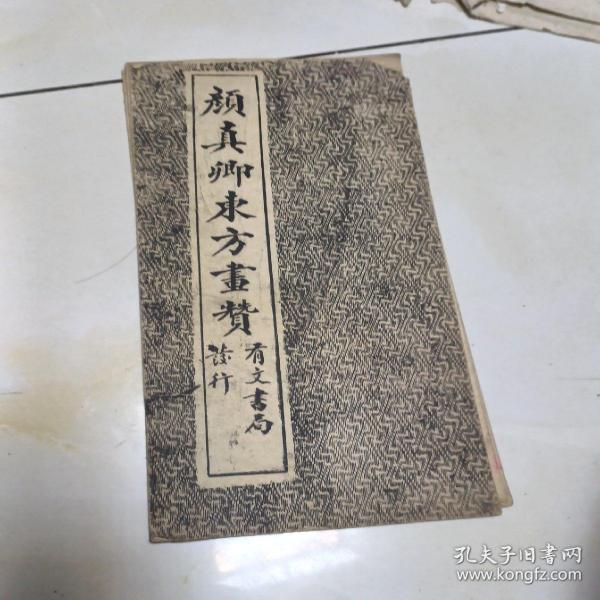 顔真卿東方畫贊
有文書局
發行
孔夫子旧书网
www.kongfz.com